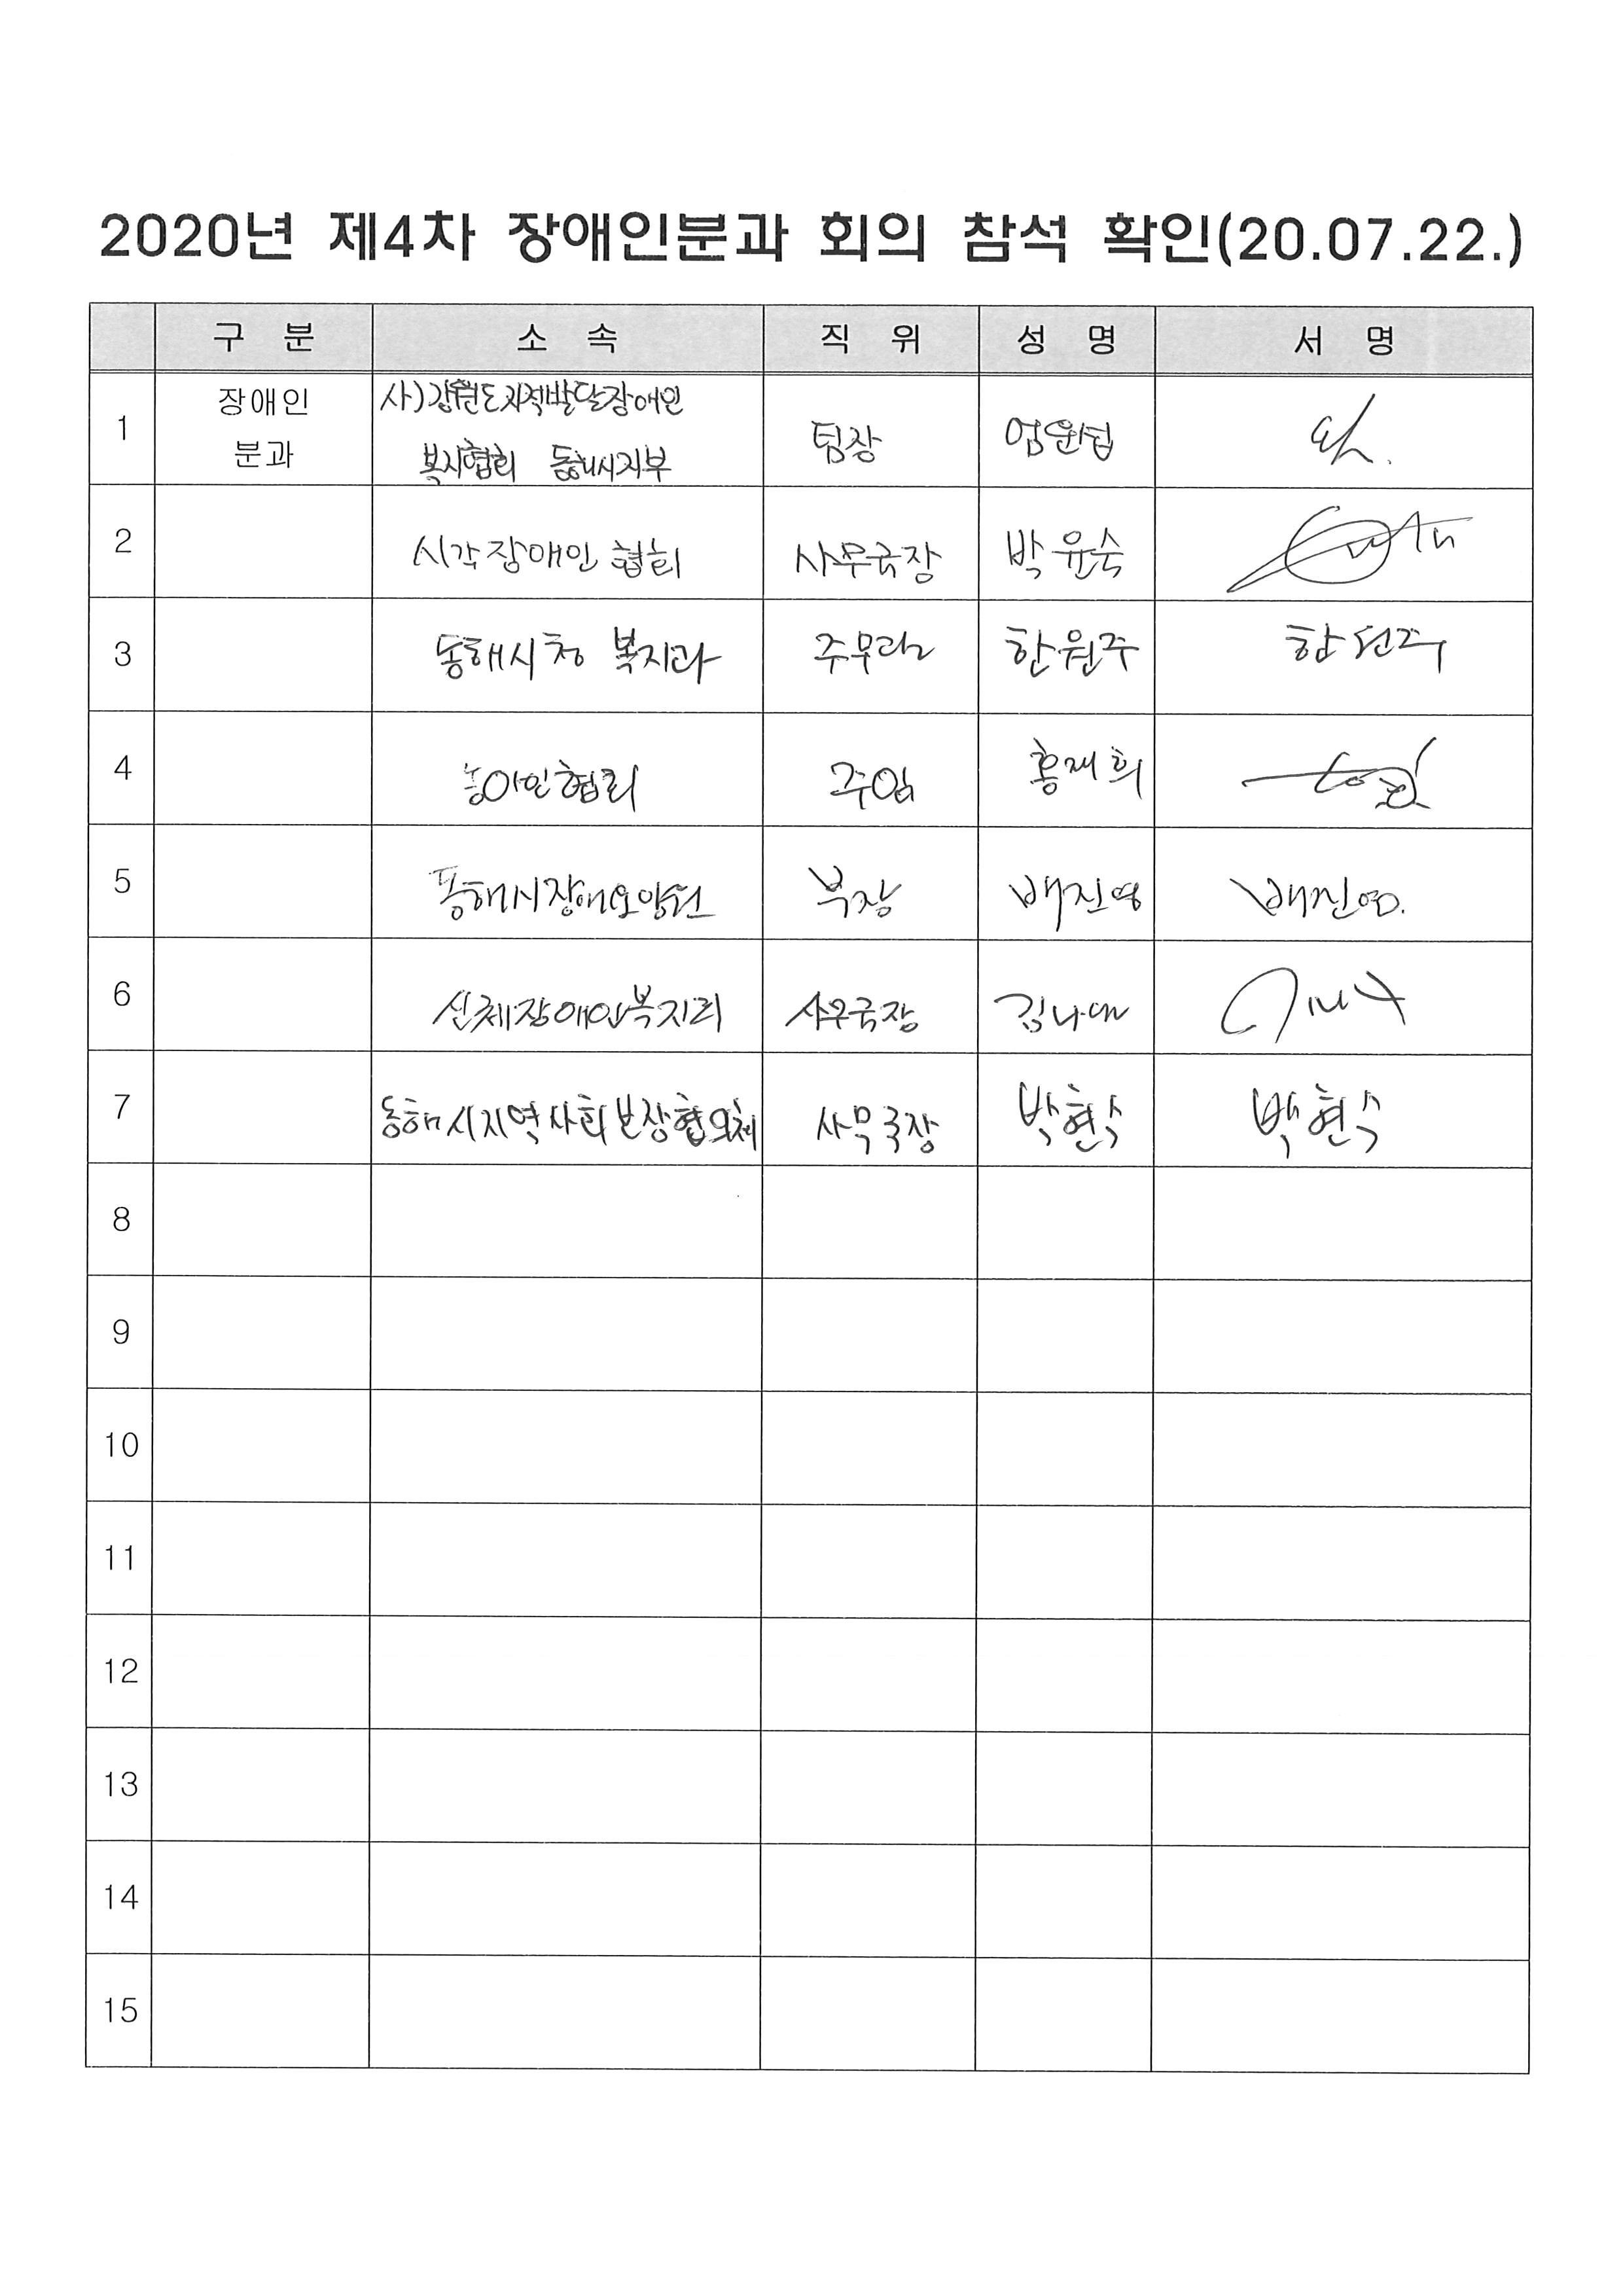 2020년 제4차 장애인분과 회의 참석 확인(20.07.22.)
구 분 소 속 직 위 성 명 서 명
1 장애인 분과 사)강원도지적발달장애인 복지협회 동해시지부 팀장
2 시각장애인 협회 사무국장 박윤숙
3 동해시청 복지과 주무관 한원주 한원주
4 농아인협회 주임 홍재희
5 동해시장애요양원 부장 배진영 배진영.
6 신체장애인복지회 사무국장
7 동해시지역사회보장협의체 사무국장 박현수 박현수
8
9
10
11
12
13
14
15